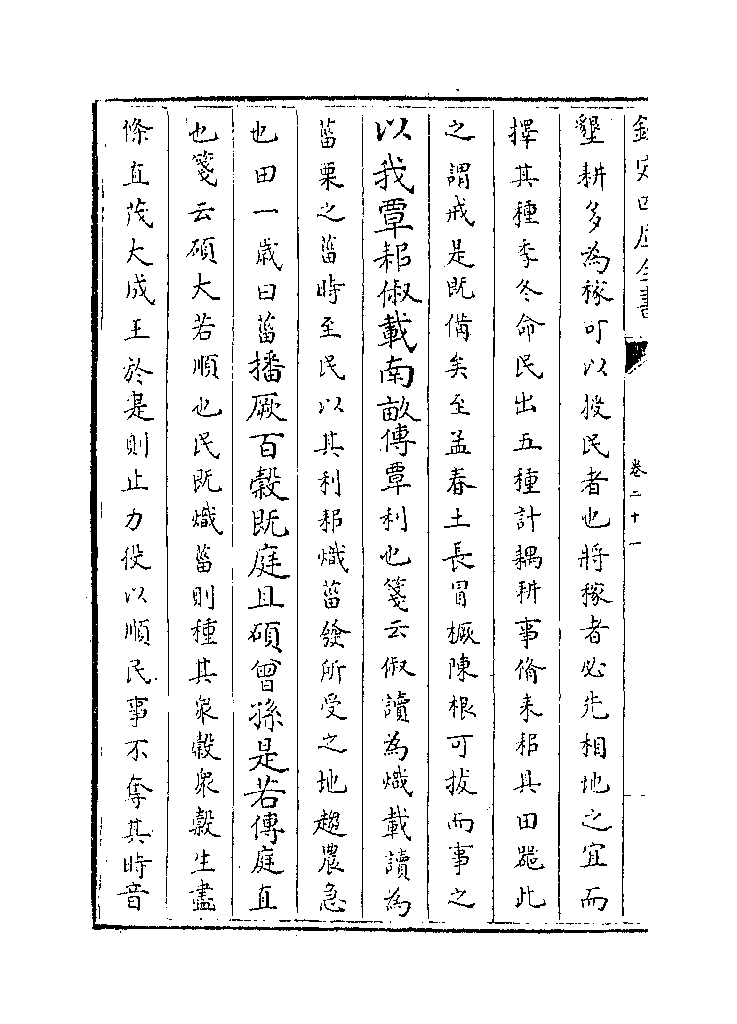 欽定四庫全書
卷二十一
墾耕多為稼可以授民者也將稼者必先相地之宜而
擇其種季冬命民出五種計耦耕事脩耒耜具田器此
之謂戒是既備矣至孟春土長冒橛陳根可拔而事之
以我覃耜俶載南畝傳覃利也箋云俶讀為熾載讀為
菑栗之菑時至民以其利耜熾菑發所受之地趨農急
也田一歲曰菑播厥百穀既庭且碩曾孫是若傳庭直
也箋云碩大若順也民既熾菑則種其衆穀衆穀生盡
條直茂大成王於是則止力役以順民事不奪其時音